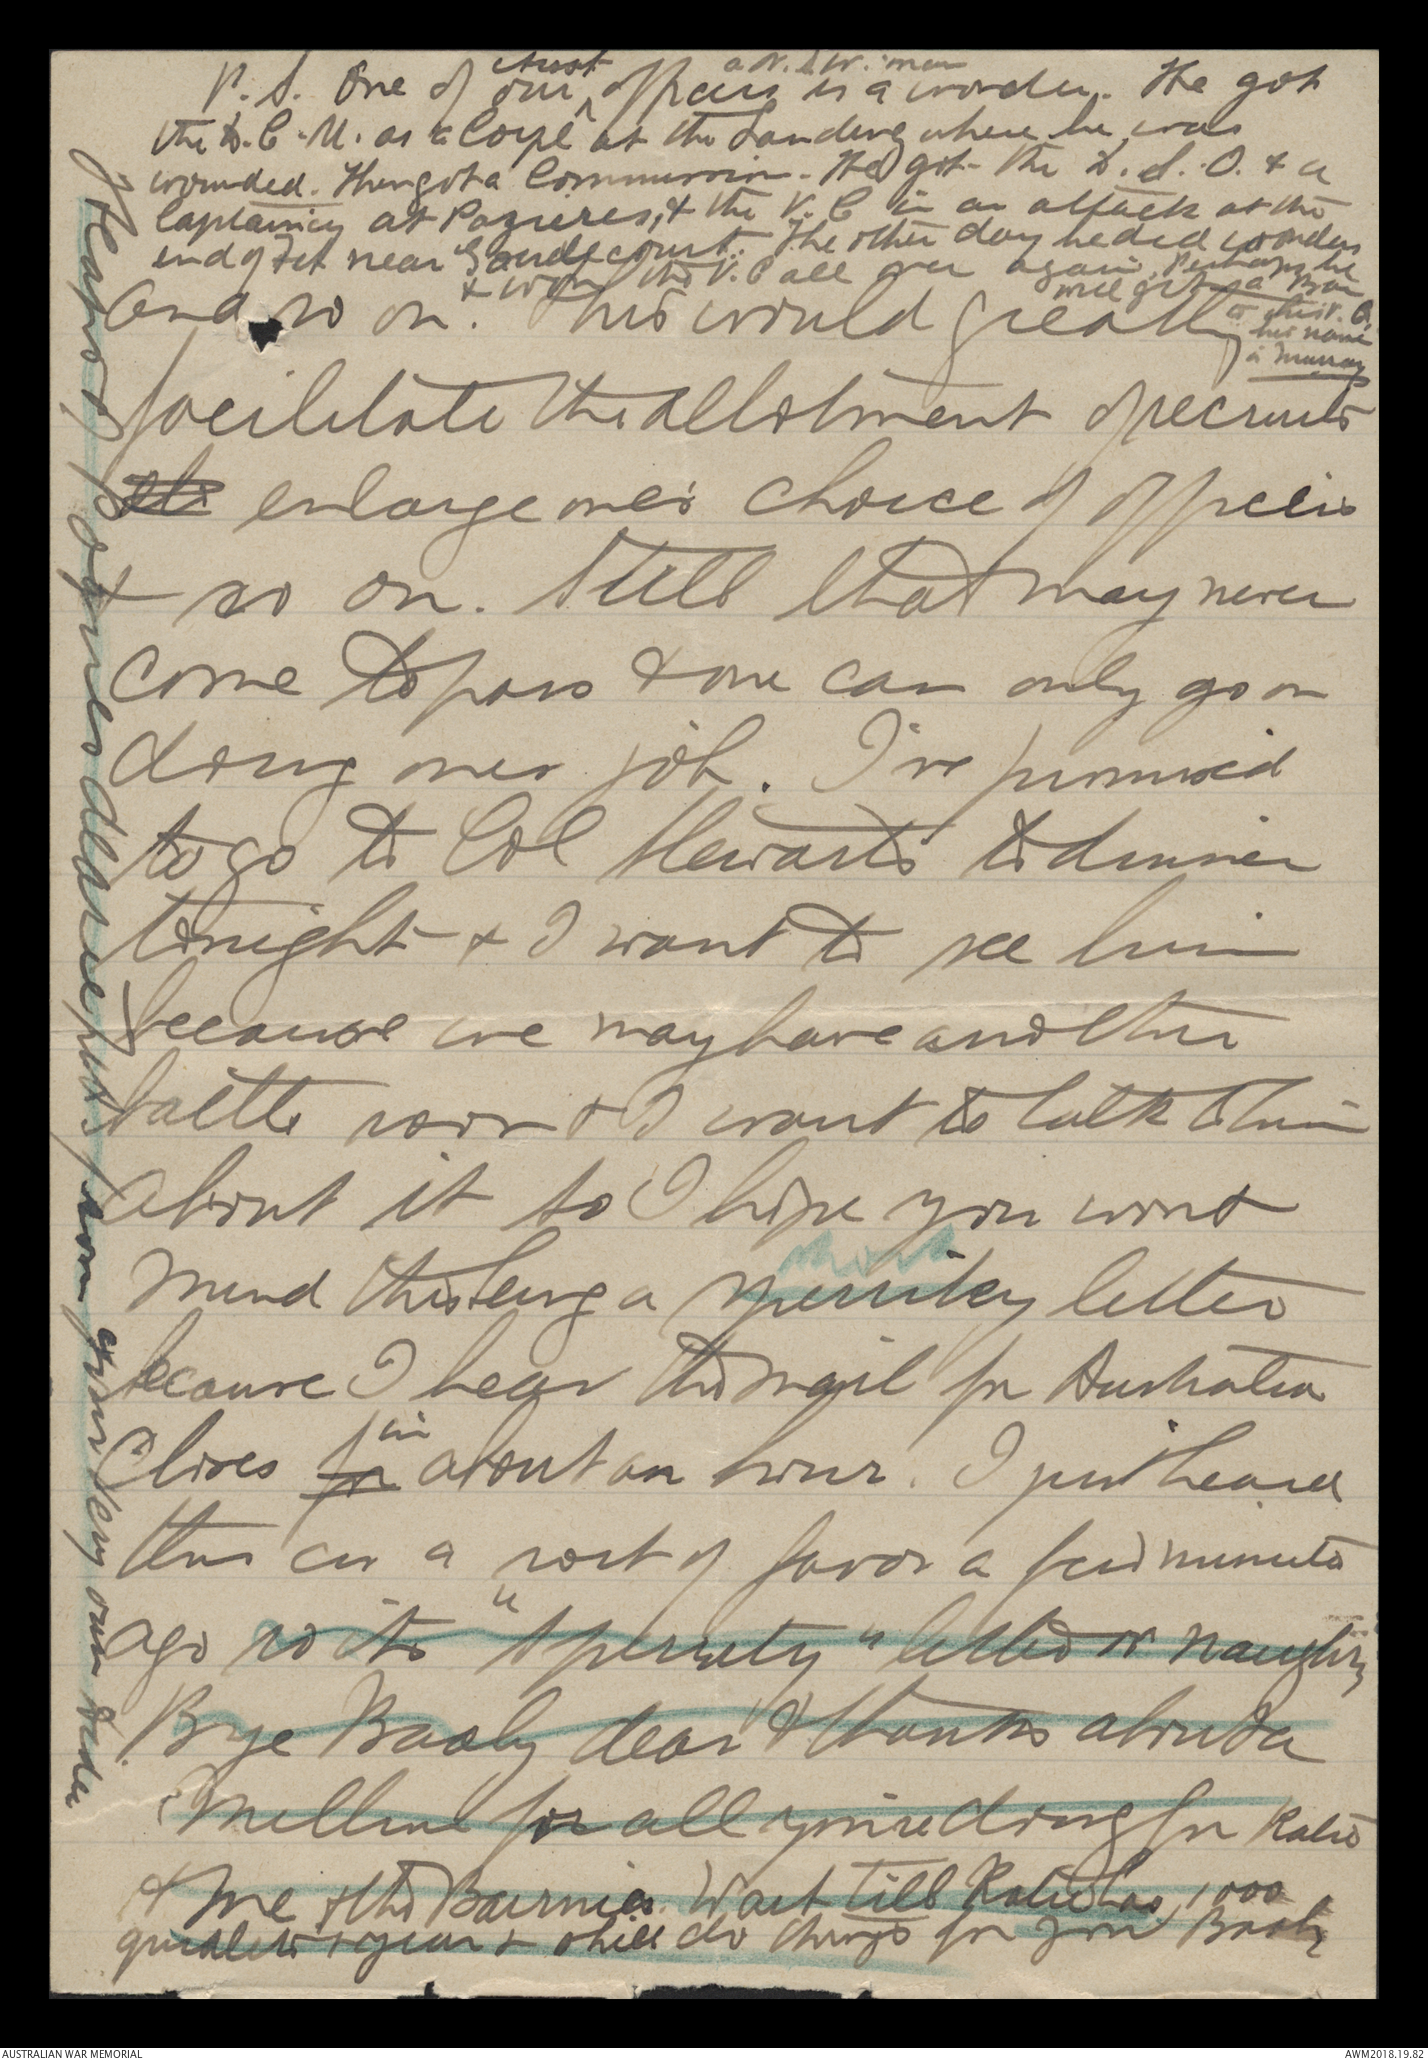 P.S. One of our Aust officers a N.S.W. man is a wonder. He got
the D.C.M. as a Corpl at the Landing where he was
wounded. Then got a Commission. He got the D.S.O. & a
Captaincy at Pozieres, & the V.C in an attack at the
end of Feb near Gueudecourt. The other day he did wonders
& won the V.C all over again. Perhaps he
will get a Bar
to his V.C.
his name
is Murray
and so on. This would greatly
facilitate the allotment of recruits
enlarge ones choice of officers
& so on. Still that may never
come to pass & one can only go on
doing ones job. I've promised
to go to Col Stewarts to dinner
tonight & I want to see him
because we may have another
battle soon & I want to talk to him
about it so I hope you wont
short
mind this being a letter
because I hear the mail for Australia
closes for in about an hour. I just heard
this as a sort of favor a few minutes
ago so its " " letter or naughty
Bye Baaly dear & thanks about a
Million for all you're doing for Katie
& me & the Bairnies. Wait till Katie has 1000
a year & she'll do things for you Baaly
Heaps of love dear from your very own
AUSTRALIAN WAR MEMORIAL
AWM2018.19.82